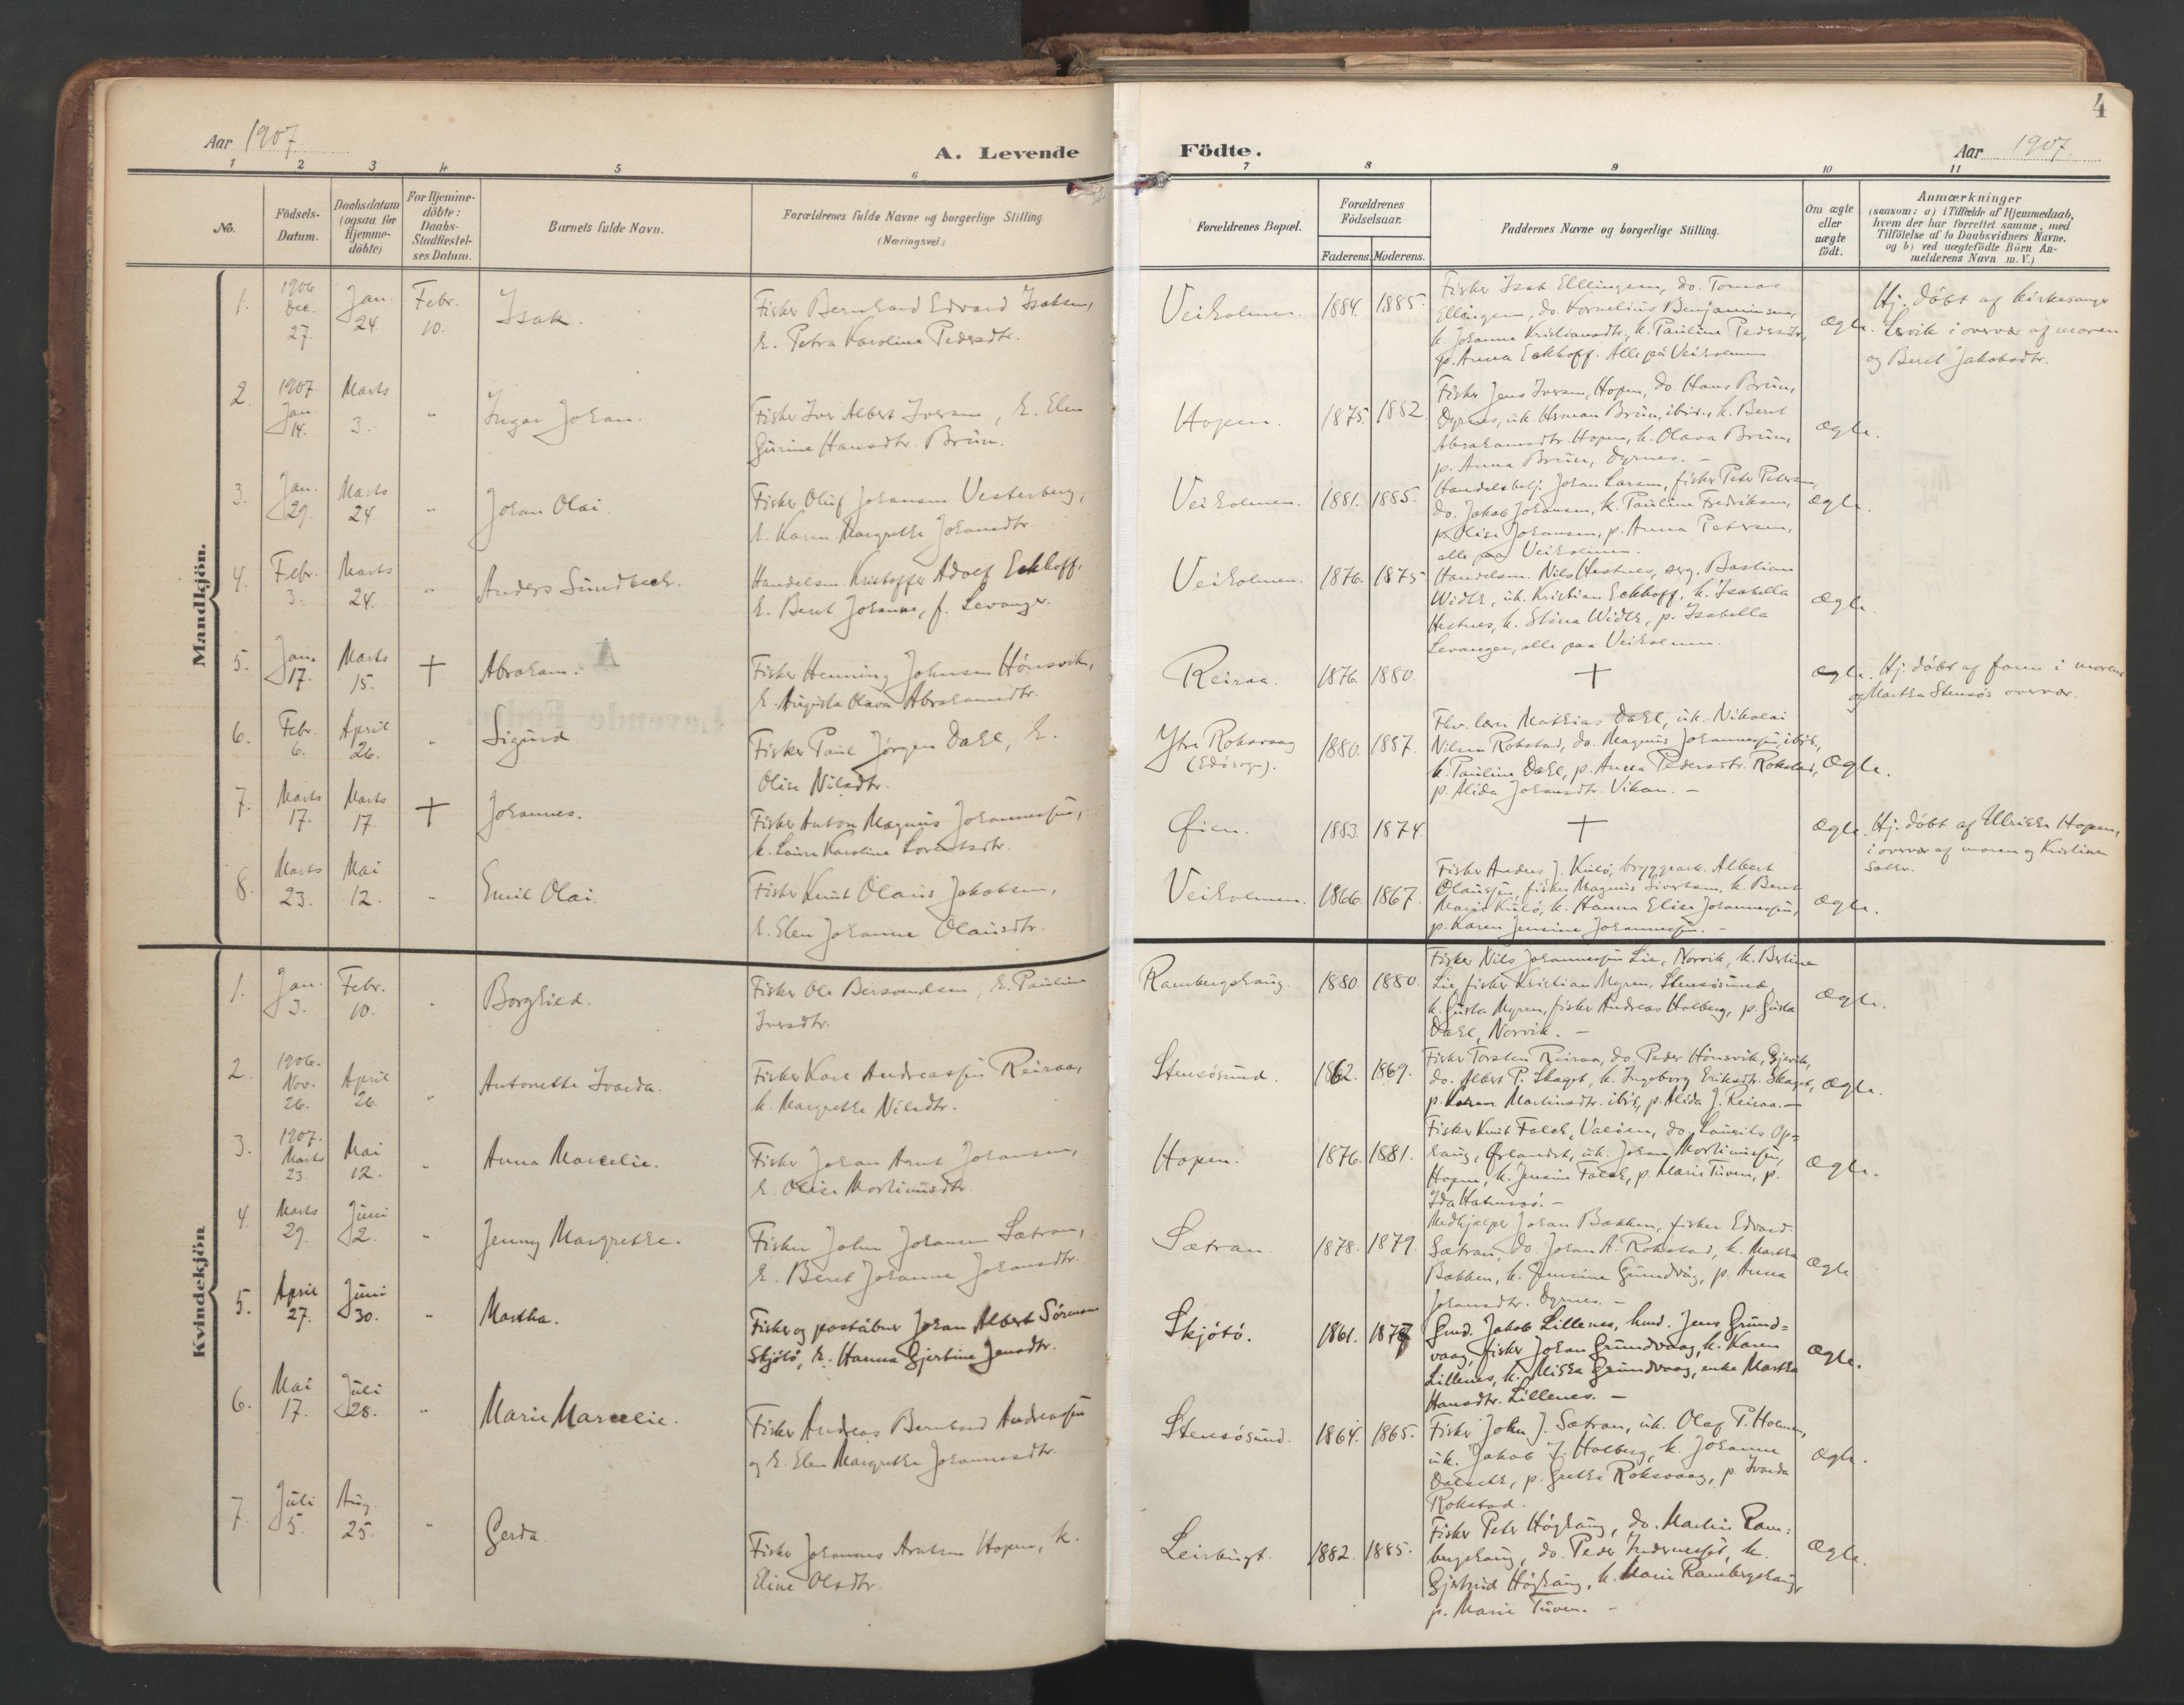 Aar 1907
A. Levende
Födte.
Aar 1907.
4
1 2 3 4 5 6 7 8 9 10 11
No.
Födsels-Datum.
Daabsdatum (ogsaa for Hjemme-döbte)
For Hjemme-döbte: Daabs-Stadfæstel-ses Datum.
Barnets fulde Navn.
Forældrenes fulde Navne og borgerlige Stilling. (Næringsvei.)
Forældrenes Bopæl.
Forældrenes Födselsaar.
Faderens. Moderens.
Faddernes Navne og borgerlige Stilling.
Om ægte eller uægte födt.
Anmærkninger
(saasom: a) i Tilfælde af Hjemmedaab,
hvem der har forrettet samme, med
Tilföielse af to Daabsvidners Navne.
og b) ved uægtefödte Börn An-
melderens Navn m. V.)
Mandkjön.
1. 1906 Dec. 27. Jan. 24 Febr. 10. Isak.
Fisker Bernhard Edvard Isaksen,
h. Petra Karoline Pedersdtr.
Veiholmen. 1884. 1885.
Fisker Isak Ellingsen, do. Tomas
Ellingsen, do Kornelius Benjaminsen,
h. Johanna Kristiansdtr, k. Pauline Pedersdtr,
p. Anna Eckhoff. Alle på Veiholmen
Ægte.
Hj. döbt af kirkesanger
Lervik i overvær af moren
og Beret Jakobsdtr.
2. 1907. Jan. 14. Marts 3. " Ingar Johan.
Fisker Iver Albert Iversen, h. Elen
Gurine Hansdtr. Brün.
Hopen. 1875. 1882.
Fisker Jens Iversen, Hopen, do. Hans Brün,
Dyrnes, uk. Herman Brün, ibid., k. Beret
Abrahamsdtr. Hopen, k. Olava Brün,
p. Anna Brün, Dyrnes. –
Ægte.
3. Jan. 29. Marts 24 " Johan Olai.
Fisker Oluf Johansen Vesterberg,
h. Karen Margrethe Johansdtr.
Veiholmen. 1881. 1885.
Handelsbetj. Johan Larsen, fisker Peter Petersen,
do. Jakob Johansen, k. Pauline Fredriksen,
p. Olise Johansen, p. Anna Petersen,
alle paa Veiholmen.
Ægte.
4. Febr. 3. Marts 24. " Anders Sundbeck.
Handelsm. Kristoffer Adolf Eckhoff.
h. Beret Johanna, f. Levanger.
Veiholmen. 1876. 1875
Handelsm. Nils Hestnes, Bastian
Width, uk. Kristian Eckhoff, k. Isabella
Hestnes, k. Stina Width, p. Isabella
Levanger, alle paa Veiholmen.
Ægte.
5. Jan. 17. Marts 15. † Abraham.
Fisker Henning Johnsen Hönsvik,
h. Augusta Olava Abrahamsdtr.
Reiraa. 1876. 1880. †
Ægte.
Hj. döbt af faren i morens
og Martha Stensös overvær.
6. Febr. 6. April 26. " Sigurd
Fisker Paul Jörgen Dahl, h.
Olise Nilsdtr.
Ytre Roksvaag (Edösogn). 1880. 1887.
Fhv. lærer Mathias Dahl, uk. Nikolai
Nilsen Rokstad, do. Magnus Johannessen, ibid.,
k. Pauline Dahl, p. Anna Pedersdtr. Rokstad,
p. Alida Johansdtr. Vikan. –
Ægte.
7. Marts 17. Marts 17 † Johannes.
Fisker Anton Magnus Johannessen,
h. Laura Karoline Lorentsdtr.
Øien. 1883. 1874. †
Ægte.
Hj. döbt af Ulrikke Hopen,
i overvær af moren og Kristine
8. Marts 23. Mai 12. " Emil Olai.
Fisker Knut Olaus Jakobsen,
h. Elen Johanna Olausdtr.
Veiholmen. 1866. 1867.
Fisker Anders J. Kulö, bryggearb. Albert
Olaussen, fisker Magnus Sivertsen, k. Beret
Marie Kulö, k. Hanna Elise Johannessen,
p. Karen Jensine Johannessen. –
Ægte.
Kvindekjön
1. Jan. 3. Febr. 10. " Borghild.
Fisker Ole Bersvendsen, h. Pauline
Iversdtr.
Rambergshaug. 1880. 1880.
Fisker Nils Johannessen Lie, Norvik, k. Berline
Lie, fisker Kristian Myren, Stensösund,
k. Gusta Myren, fisker Andreas Holberg, p. Gusta
Dahl, Norvik. –
Ægte.
2. 1906. Nov. 26. April 26. " Antonette Ivarda.
Fisker Karl Andreassen Reiraa,
h. Margrethe Nilsdtr.
Stensösund. 1862. 1869.
Fisker Torsten Reiraa, do. Peder Hönsvik, Gjevik,
do. Albert P. Skaget, k. Ingeborg Eriksdtr. Skaget,
p. Karen Martinsdtr. ibid, p. Alida J. Reiraa. –
Ægte.
3. 1907. Marts 23. Mai 12. " Anna Marcelie.
Fisker Johan Arnt Johansen,
h. Olise Mortinusdtr.
Hopen. 1876. 1881.
Fisker Knut Falck, Valöen, do. Laurits Op=
haug, Ørlandet, uk. Johan Mortinussen,
Hopen, k. Jensine Falck, p. Marie Tuven, p.
Ida
Ægte.
4. Marts 29. Juni 2. " Jenny Margrethe.
Fisker John Johansen Sætran,
h. Beret Johanna Johansdtr.
Sætran 1878. 1879.
Medhjælper Johan Bakken, fisker Edvard
Sætran, do. Johan A. Rokstad, k. Martha
Bakken, k. Jensine Grundvåg, p. Anna
Johansdtr. Dyrnes. –
Ægte
5. April 27. Juni 30. " Martha.
Fisker og poståbner Johan Albert Sörensen
Skjölö, h. Hanna Gjertine Jensdtr.
Skjölö. 1861. 1877
Gmd. Jakob Lillenes, hmd. Jens Grund=
vaag, fisker Johan Grundvaag, k. Karen
Lillenes, k. Mikka Grundvaag, enke Martha
Hansdtr. Lillenes. –
Ægte.
6. Mai 17. Juli 28. " Marie Marcelie.
Fisker Andreas Bernhard Andreassen
og h. Elen Margrethe Johannesdtr.
Stensösund. 1864. 1865.
Fisker John J. Sætran, uk. Olaf P. Holmen,
uk. Jakob J. Holberg, k. Johanna
p. Grethe Roksvaag, p. Ivarda
Rokstad.
Ægte.
7. Juli 5. Aug. 25. " Gerda.
Fisker Johannes Arntsen Hopen, h.
Eline Olsdtr.
Leirbugt. 1882. 1885.
Fisker Peter Höghaug, do. Martin Ram=
bergshaug, do. Peder k.
Gjertrud Höghaug, k. Marie Rambergshaug,
p. Marie Tuven. –
Ægte.